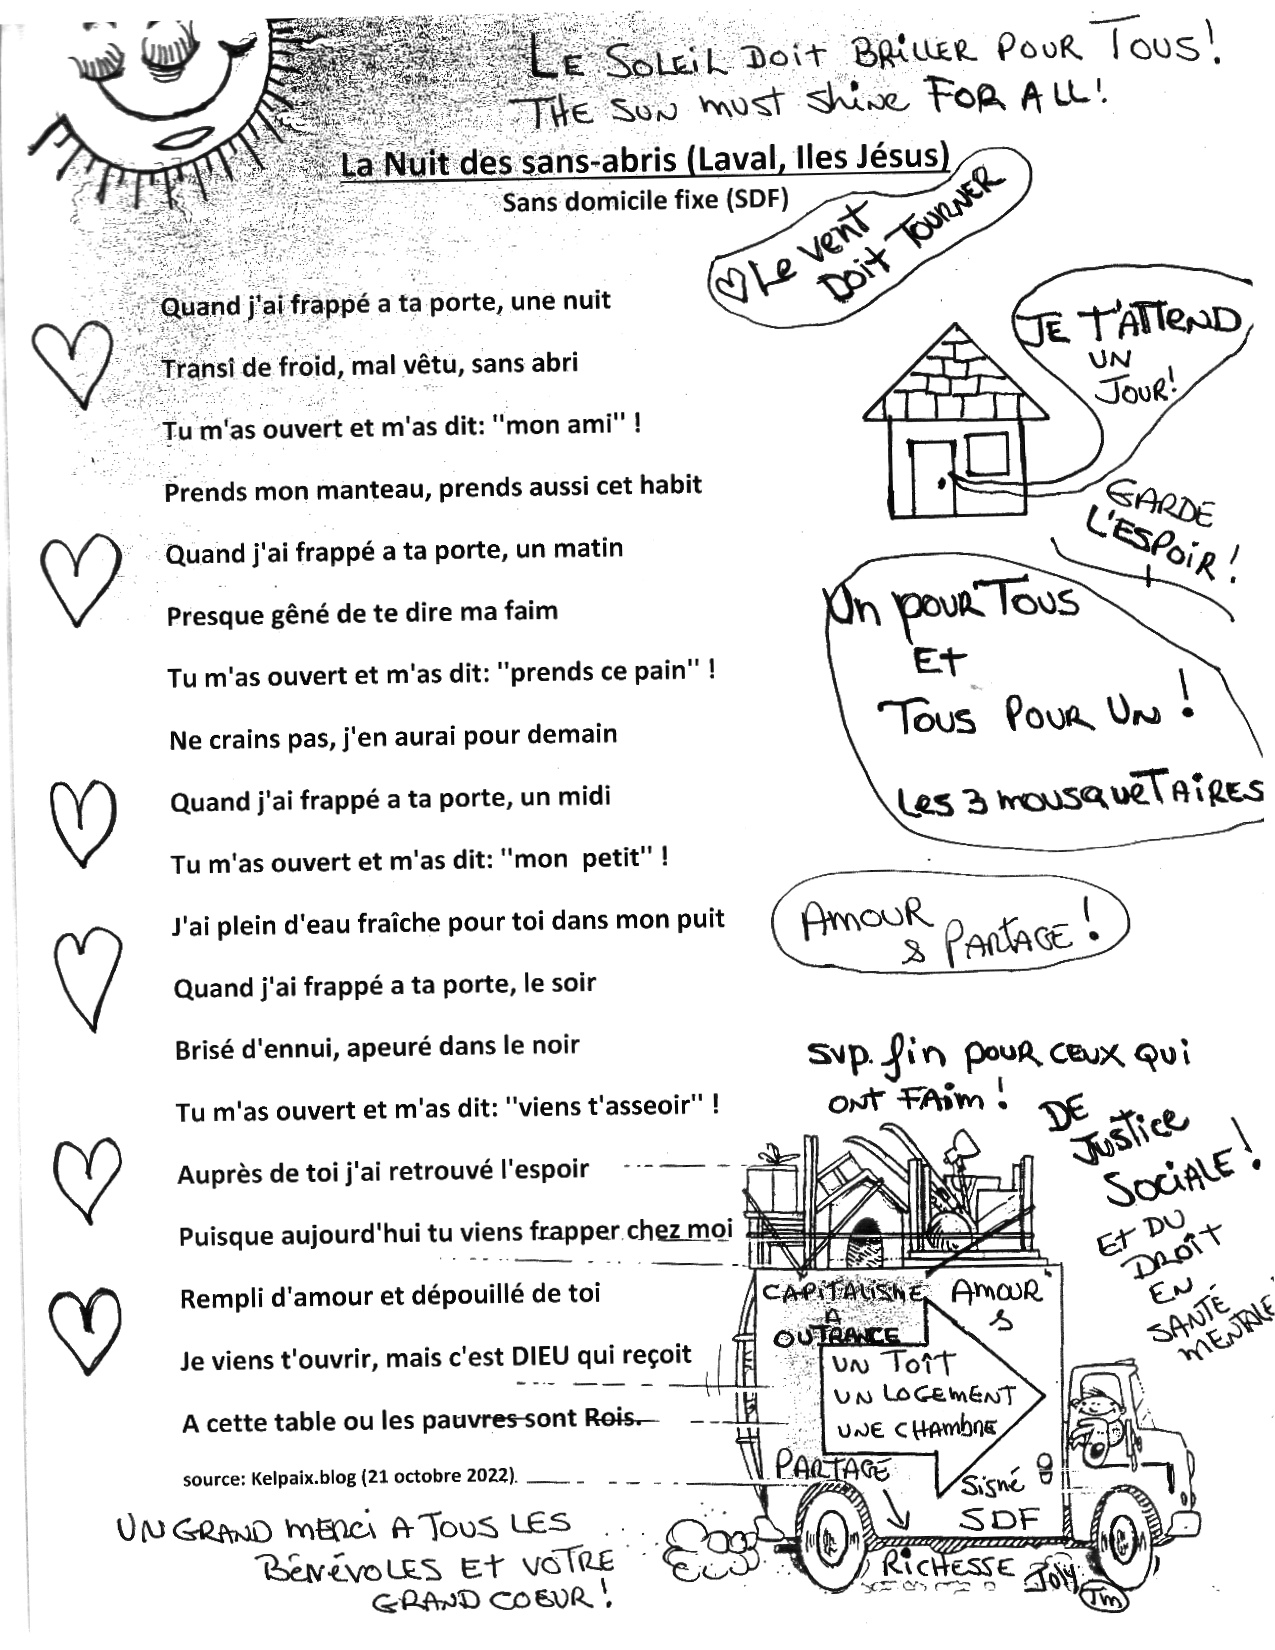 LE SOLEIL DOIT BRILLER POUR TOUS!
THE SUN MUST shine FOR ALL!
La Nuit des sans-abris (Laval, Iles Jésus)
Sans domicile fixe (SDF)
Le vent
DOIT TOURNER
Quand j'ai frappé a ta porte, une nuit
Transi de froid, mal vêtu, sans abri
Tu m'as ouvert et m'as dit: "mon ami" !
Prends mon manteau, prends aussi cet habit
Quand j'ai frappé a ta porte, un matin
Presque gêné de te dire ma faim
Tu m'as ouvert et m'as dit: "prends ce pain" !
Ne crains pas, j'en aurai pour demain
Quand j'ai frappé a ta porte, un midi
Tu m'as ouvert et m'as dit: "mon  petit" !
J'ai plein d'eau fraîche pour toi dans mon puit
Quand j'ai frappé a ta porte, le soir
Brisé d'ennui, apeuré dans le noir
Tu m'as ouvert et m'as dit: "viens t'asseoir" !
Auprès de toi j'ai retrouvé l'espoir
Puisque aujourd'hui tu viens frapper chez moi
Rempli d'amour et dépouillé de toi
Je viens t'ouvrir, mais c'est DIEU qui reçoit
A cette table ou les pauvres sont Rois.
source: Kelpaix.blog (21 octobre 2022).
JE T'ATTEND
UN
JOUR!
GARDE
L'ESPOIR!
Un POUR TOUS
ET
TOUS POUR UN!
Les 3 mousqueTAIRES
AMOUR
& PARTAGE!
SVP. fin POUR CEUX QUI
ONT FAim!
DE
JUSTICE
SOCIALE!
ET DU
DROÎT
EN
SANTÉ
MENTALE
CAPITALISME
A
OUTRANCE
AMOUR
&
UN TOÎT
UN LOGEMENT
UNE CHAMBRE
PARTAGE
Signé
SDF
RICHESSE
Joly
Jm
UN GRAND MERCI A TOUS LES
BÉNÉVOLES ET VOTRE
GRAND COEUR!